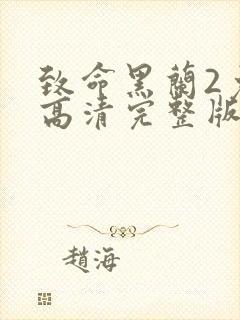 致命黑蘭2
高清完整版
趙海